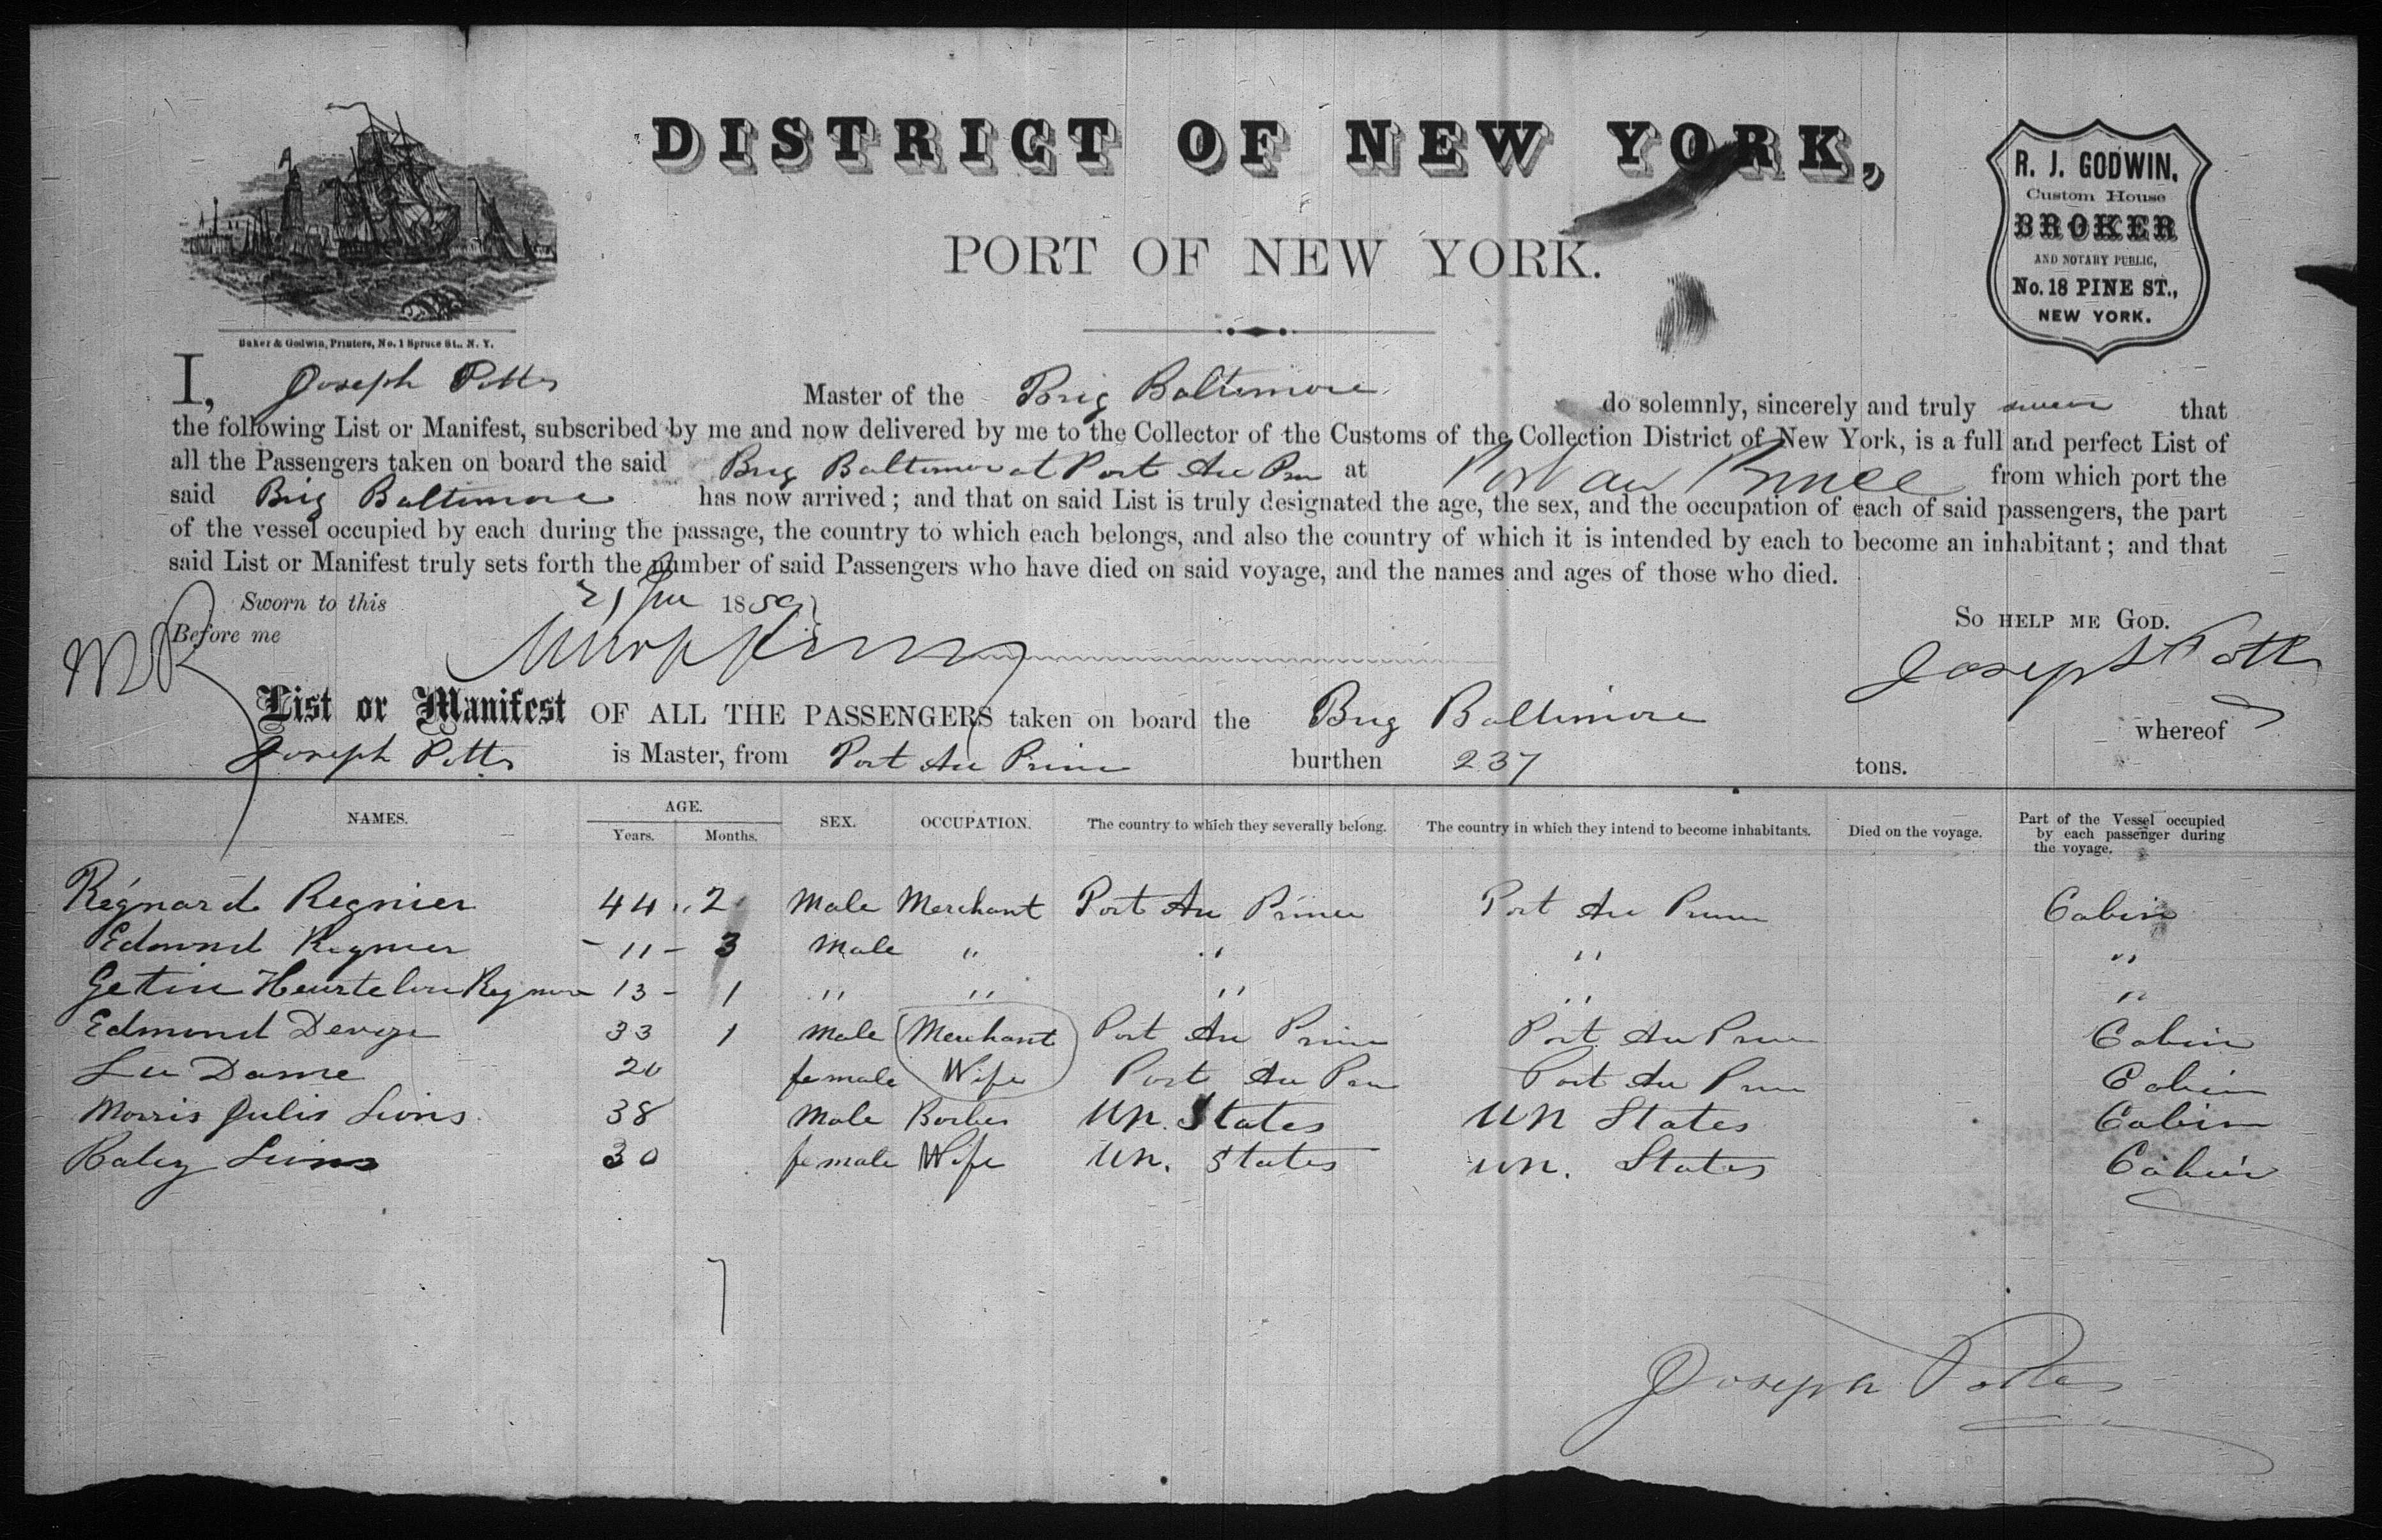 DISTRICT OF NEW YORK,
PORT OF NEW YORK.
R. J. GODWIN,
Custom House
BROKER
AND NOTARY PUBLIC,
No. 18 PINE ST.,
NEW YORK.
Baker & Godwin, Printers, No. 1 Spruce St., N. Y.
I, Joseph Potts Master of the Brig Baltimore do solemnly, sincerely and truly swear that
the following List or Manifest, subscribed by me and now delivered by me to the Collector of the Customs of the Collection District of New York, is a full and perfect List of
all the Passengers taken on board the said Brig Baltimore at Port Au Prin at Port au Prince from which port the
said Brig Baltimore has now arrived; and that on said List is truly designated the age, the sex, and the occupation of each of said passengers, the part
of the vessel occupied by each during the passage, the country to which each belongs, and also the country of which it is intended by each to become an inhabitant; and that
said List or Manifest truly sets forth the number of said Passengers who have died on said voyage, and the names and ages of those who died.
Sworn to this 21 1859
So help me God.
Before me
Joseph Potts
List or Manifest OF ALL THE PASSENGERS taken on board the Brig Baltimore whereof
Joseph Potts is Master, from Port Au Prince burthen 237 tons.
NAMES. AGE. Years. Months. SEX. OCCUPATION. The country to which they severally belong. The country in which they intend to become inhabitants. Died on the voyage. Part of the Vessel occupied by each passenger during the voyage.
Régnard Regnier 44 " 2 Male Merchant Port Au Prince Port Au Prince Cabin
Edmond Regnier - 11 - 3 Male " " " "
Getin Regnier 13 - 1 " " " " "
Edmond 33 1 Male Merchant Port Au Prince Port Au Prin Cabin
Dame 20 female Wife Port Au Prin Port Au Prin Cabin
Morris Julis Lions 38 Male Barber Un. States Un States Cabin
Lions 30 female Wife Un. States Un. States Cabin
7
Joseph Potts